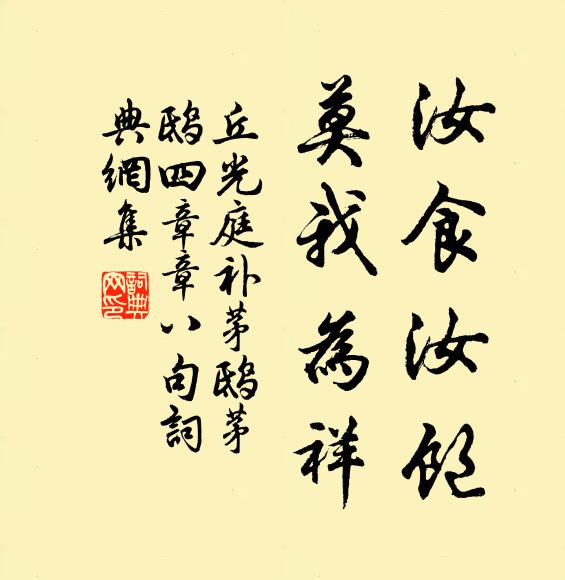 汝食汝飽
莫我為祥
丘光庭补茅鴟茅
鴟四章章八句詞
典網集
詞典
网印